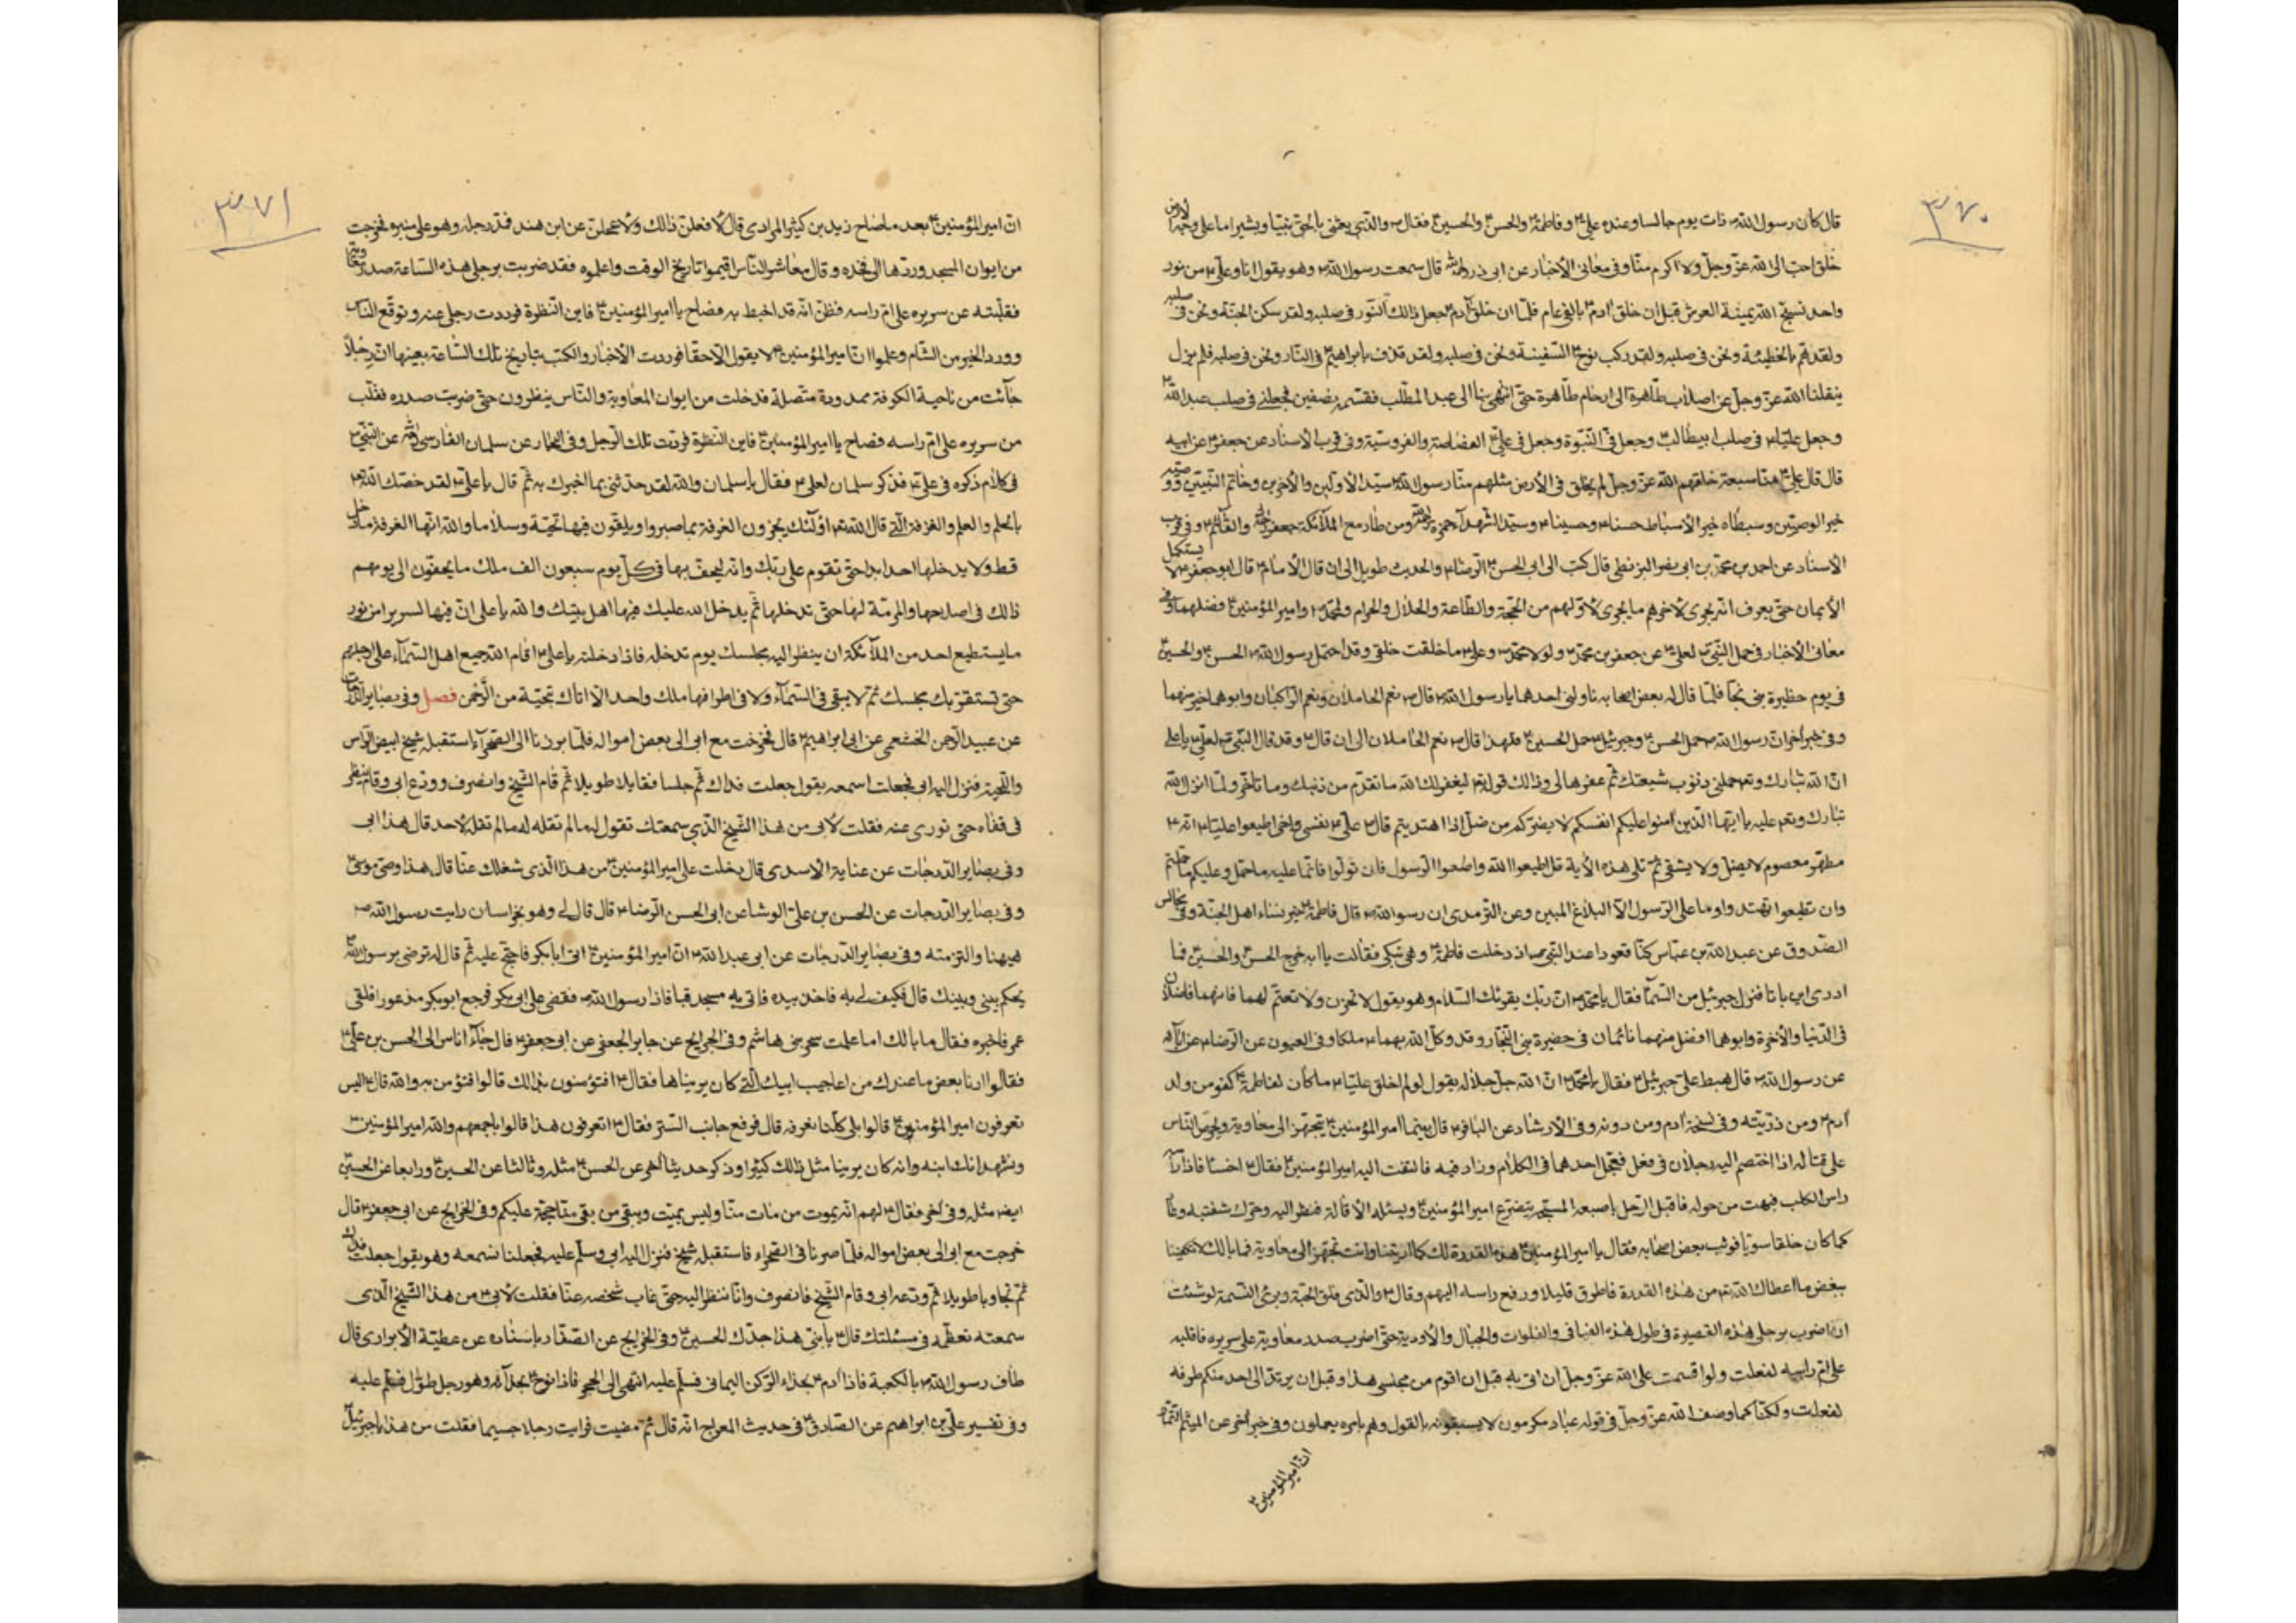 ٣٧٠
قال كان رسول الله ص ذات يوم جالسا وعنده علي ع وفاطمة ع والحسن ع والحسين ع فقال ص والذي بعثني بالحق نبيا وبشيرا ما على وجه الارض
خلق احب الى الله عز وجل ولا اكرم منا وفي معاني الأخبار عن ابي ذر قال سمعت رسول الله ص وهو يقول انا وعلي ع من نور
واحد نسبح الله يمينة العرش قبل ان خلق آدم ع بالفي عام فلما ان خلق آدم ع جعل ذالك النور في صلبه ولقد سكن الجنة ونحن في صلبه
ولقد هم بالخطيئة ونحن في صلبه ولقد ركب نوح ع السفينة ونحن في صلبه ولقد قذف بابراهيم ع في النار ونحن في صلبه فلم يزل
ينقلنا الله عز وجل من اصلاب طاهرة الى ارحام طاهرة حتى انتهى بنا الى عبد المطلب فقسمه بنصفين فجعلني في صلب عبد الله ع
وجعل عليا ع في صلب ابيطالب وجعل في النبوة وجعل في علي ع والفروسية وفي قرب الأسناد عن جعفر ع عن ابيه
قال قال علي ع منا سبعة خلقهم الله عز وجل لم يخلق في الأرض مثلهم منا رسول الله ص سيد الأولين والأخرين وخاتم النبيين ووصيه
خير الوصيين وسبطاه خير الأسباط حسنا ع وحسينا ع وسيد الشهدآء حمزة ومن طار مع الملآئكة جعفر والقآئم ع وفي قرب
الأسناد عن احمد بن محمد بن ابي نصر البزنطي قال كتب الى ابي الحسن الرضا ع والحديث طويل الى ان قال الأمام ع قال ابو جعفر ع لا يستكمل
الأيمان حتى يعرف انه يجري لآخرهم ما يجري لأولهم من الحجة والطاعة والحلال والحرام ولمحمد ص وامير المؤمنين ع فضلهما وفي
معاني الأخبار في حمل النبي ص لعلي ع عن جعفر بن محمد ع ولولا محمد ص وعلي ع ما خلقت خلقي وقد احتمل رسول الله ص الحسن ع والحسين ع
في يوم حظيرة بني نجآر فلما قال له بعض اصحابه ناولني احدهما يا رسول الله ص قال ص نعم الحاملان ونعم الراكبان وابوهما خير منهما
وفي خبر آخر ان رسول الله ص حمل الحسن ع وجبرئيل ع حمل الحسين ع فلهذا قال ص نعم الحاملان الى ان قال ع وقد قال النبي ص لعلي ع يا علي
ان الله تبارك وتع حملني ذنوب شيعتك ثم غفرها لي وذالك قوله تع ليغفر لك الله ما تقدم من ذنبك وما تاخر ولما انزل الله
تبارك وتع عليه يا ايها الذين آمنوا عليكم انفسكم لا يضركم من ضل اذا اهتديتم قال ص علي ع نفسي واخي اطيعوا عليا ع انه ع
مطهر معصوم لا يضل ولا يشقى ثم تلى هذه الأية قل اطيعوا الله واطيعوا الرسول فان تولوا فانما عليه ما حمل وعليكم ما حملتم
وان تطيعوا تهتدوا وما على الرسول الا البلاغ المبين وعن الترمدي ان رسول الله ص قال فاطمة ع خير نساء اهل الجنة وفي مجالس
الصدوق عن عبد الله بن عباس كنا قعودا عند النبي ص اذ دخلت فاطمة ع وهي تبكي فقالت يا ابه خرج الحسن ع والحسين ع فما
ادري اين باتا فنزل جبرئيل من السمآء فقال يا محمد ص ان ربك يقرئك السلام وهو يقول لا تحزن ولا تغتم لهما فانهما فاضلان
في الدنيا والأخرة وابوهما افضل منهما نائمان في حضيرة بني النجار وقد وكل الله بهما ملكا وفي العيون عن الرضا ع عن آبآئه
عن رسول الله ص قال هبط علي جبرئيل ع فقال يا محمد ص ان الله جل جلاله يقول لو لم اخلق عليا ع ما كان لفاطمة ع كفو من ولد
آدم ع ومن ذريته وفي نسخة آدم ومن دونه وفي الأرشاد عن الباقر ع قال بينما امير المؤمنين ع يتجهز الى معاوية ويحرض الناس
على قتاله اذا اختصم اليه رجلان في فعل فعجل احدهما في الكلام وزاد فيه فالتفت اليه امير المؤمنين ع فقال ع اخسأ فاذا رأسه
راس الكلب فبهت من حوله فاقبل الرجل باصبعه المسبحة يتضرع امير المؤمنين ع ويسئله الأقالة فنظر اليه وحرك شفتيه وعاد
كما كان خلقا سويا فوثب بعض اصحابه فقال يا امير المؤمنين ع هذه القدرة لك كما اريتنا وانت تجهز الى معاوية فما بالك لا تكفينا
ببعض ما اعطاك الله تع من هذه القدرة فاطرق قليلا ورفع راسه اليهم وقال ع والذي فلق الحبة وبرئ النسمة لو شئت
ان اضرب برجلي هذه القصيرة في طول هذه الفيافي والفلوات والجبال والأودية حتى اضرب صدر معاوية على سريره فاقلبه
على ام راسه لفعلت ولو اقسمت على الله عز وجل ان اتى به قبل ان اقوم من مجلسي هذا وقبل ان يرتد الى احد منكم طرفه
لفعلت ولكنا كما وصف الله عز وجل في قوله عباد مكرمون لا يسبقونه بالقول وهم بامره يعملون وفي خبر آخر عن الميثم التمار
ان امير المؤمنين ع
٣٧١
ان امير المؤمنين ع بعد ما صلح زيد بن كثير المرادي قال لأفعلن ذالك ولأعجلن عن ابن هند فمد رجله وهو على منبره فخرجت
من ايوان المسجد وردها الى فخذه وقال معاشر الناس اقيموا تاريخ الوقت واعلموه فقد ضربت برجلي هذه الساعة صدر
فقلبته عن سريره على ام راسه فظن انه قد احيط به فصاح يا امير المؤمنين ع فاين النظرة فرددت رجلي عنه وتوقع الناس
وورد الخبر من الشام وعلموا ان امير المؤمنين ع لا يقول الا حقا فوردت الأخبار والكتب بتاريخ تلك الساعة بعينها ان رجلا
جآئت من ناحية الكوفة ممدودة متصلة فدخلت من ايوان المعاوية والناس ينظرون حتى ضربت صدره فقلب
من سريره على ام راسه فصاح يا امير المؤمنين ع فاين النظرة فردت تلك الرجل وفي البحار عن سلمان الفارسي عن النبي ص
في كلام ذكره في علي ع فذكر سلمان لعلي ع فقال يا سلمان والله لقد حدثني بما اخبرك به ثم قال يا علي ع لقد خصك الله تع
بالحلم والعلم والغرفة التي قال الله تع اولئك يجزون الغرفة بما صبروا ويلقون فيها تحية وسلاما والله انها الغرفة ما دخل
قط ولا يدخلها احد ابدا حتى تقوم على ربك وانه ليحف بها في كل يوم سبعون الف ملك ما يحفون الى يومهم
ذالك في اصلاحها والمرمة لها حتى تدخلها ثم يدخل الله عليك فيها اهل بيتك والله يا علي ان فيها لسريرا من نور
ما يستطيع احد من الملآئكة ان ينظر اليه مجلسك يوم تدخله فاذا دخلته يا علي ع اقام الله جميع اهل السمآء على ارجلهم
حتى تستقر بك مجلسك ثم لا يبقى في السمآء ولا في اطرافها ملك واحد الا اتاك بتحية من الرحمن فصل وفي بصاير الدرجات
عن عبيد الرحمن الخثعمي عن ابي ابراهيم ع قال فخرجت مع ابي الى بعض امواله فلما برزنا الى الصحرآء استقبله شيخ ابيض الراس
واللحية فنزل اليه ابي فجعلت اسمعه يقول جعلت فداك ثم جلسا فتقايلا طويلا ثم قام الشيخ وانصرف وودع ابي وقام ينظر
في قفاه حتى تورى عنه فقلت لأبي من هذا الشيخ الذي سمعتك تقول له ما لم تقله لاحد قال هذا ابي
وفي بصاير الدرجات عن عباية الأسدي قال دخلت على امير المؤمنين ع من هذا الذي شغلك عنا قال هذا وصي موسى ع
وفي بصاير الدرجات عن الحسن بن علي الوشا عن ابي الحسن الرضا ع قال قال لي وهو بخراسان رايت رسول الله ص
هيهنا والتزمته وفي بصاير الدرجات عن ابي عبد الله ع ان امير المؤمنين ع اتى ابا بكر فاحتج عليه ثم قال له ترضى برسول الله ص
يحكم بيني وبينك قال فكيف لي به فاخذ بيده فاتى به مسجد قبا فاذا رسول الله ص فقضى على ابي بكر فرجع ابو بكر مذعورا فلقى
عمر فاخبره فقال ما بالك اما علمت سحر بني هاشم وفي الخرايج عن جابر الجعفي عن ابي جعفر ع قال جآء اناس الى الحسن بن علي ع
فقالوا ارنا بعض ما عندك من اعاجيب ابيك التي كان يريناها فقال ع افتؤمنون بذالك قالوا فنؤمن به والله قال ع اليس
تعرفون امير المؤمنين ع قالوا بلى كلنا نعرفه قال فرفع جانب الستر فقال ع اتعرفون هذا قالوا باجمعهم والله امير المؤمنين ع
ونشهد انك ابنه وانه كان يرينا مثل ذالك كثيرا وذكر حديثا آخر عن الحسن ع مثله وثالثا عن الحسين ع ورابعا عن الحسين ع
ايضا مثله وفي آخر فقال ع لهم انه يموت من مات منا وليس بميت ويبقى من بقي منا حجة عليكم وفي الخرايج عن ابي جعفر ع قال
خرجت مع ابي الى بعض امواله فلما صرنا في الصحراء فاستقبله شيخ فنزل اليه ابي وسلم عليه فجعلنا نسمعه وهو يقول جعلت فداك
ثم تجاوبا طويلا ثم ودعه ابي وقام الشيخ فانصرف وانا ننظر اليه حتى غاب شخصه عنا فقلت لأبي ع من هذا الشيخ الذي
سمعته تعظمه في مسئلتك قال ع يا بني هذا جدك الحسين ع وفي الخرايج عن الصفار باسناده عن عطية الأبزاري قال
طاف رسول الله ص بالكعبة فاذا آدم ع بحذاء الركن اليماني فسلم عليه انتهى الى الحجر فاذا نوح ع بحذآئه وهو رجل طوال فسلم عليه
وفي تفسير علي بن ابراهيم عن الصادق ع في حديث المعراج انه قال ثم مضيت فرايت رجلا جسيما فقلت من هذا يا جبرئيل